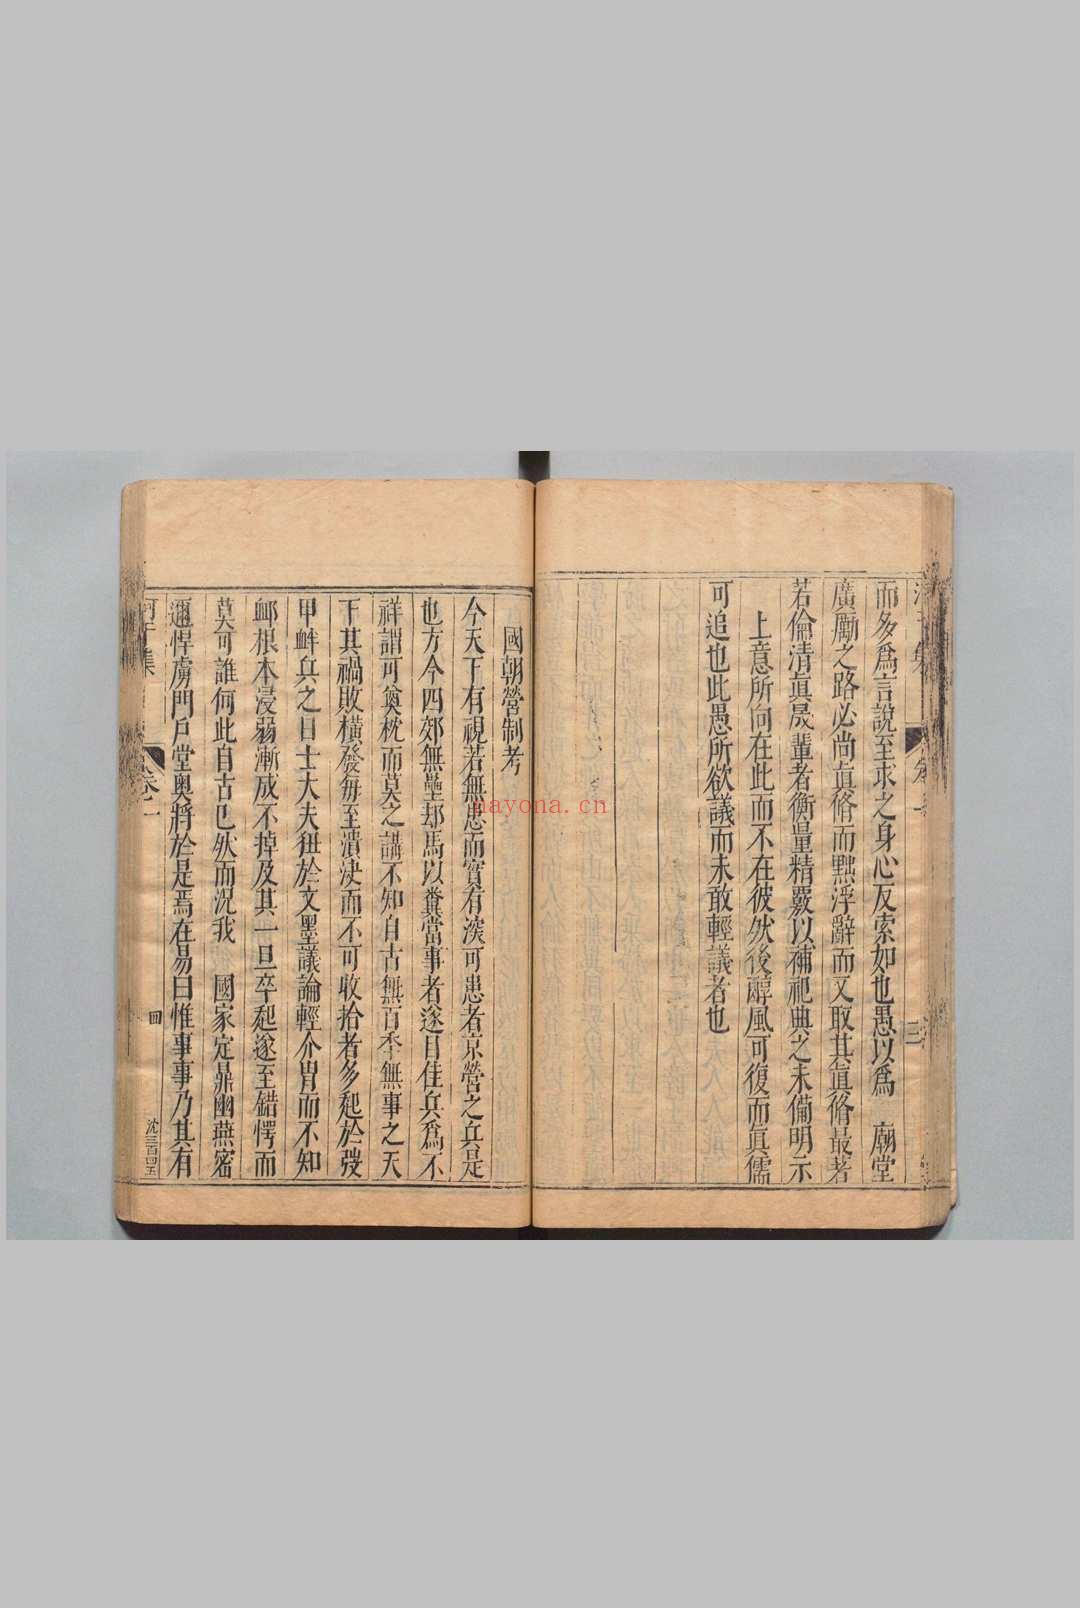 而多爲言說至求之身心反索如也愚以爲　廟堂
廣勵之路必尚眞脩而黜浮辭而又取其眞脩最著
若倫清眞晟輩者衡量精覈以補祀典之未備明示
上意所向在此而不在彼然後醇風可復而眞儒
可追也此愚所欲議而未敢輕議者也
三
國朝營制考
今天下有視若無患而實有深可患者京營之兵是
也方今四郊無壘却馬以糞當事者遂目佳兵爲不
祥謂可奠枕而莫之講不知自古無百年無事之天
下其禍敗橫發每至潰決而不可收拾者多起於弢
甲衅兵之日士大夫狃於文墨議論輕介冑而不知
卹根本浸弱漸成不掉及其一旦卒起遂至錯愕而
莫可誰何此自古已然而況我　國家定鼎幽燕密
邇悍虜門戶堂奧將於是焉在易曰惟事事乃其有
集
卷一
四
沈三百四五
nayona.cn